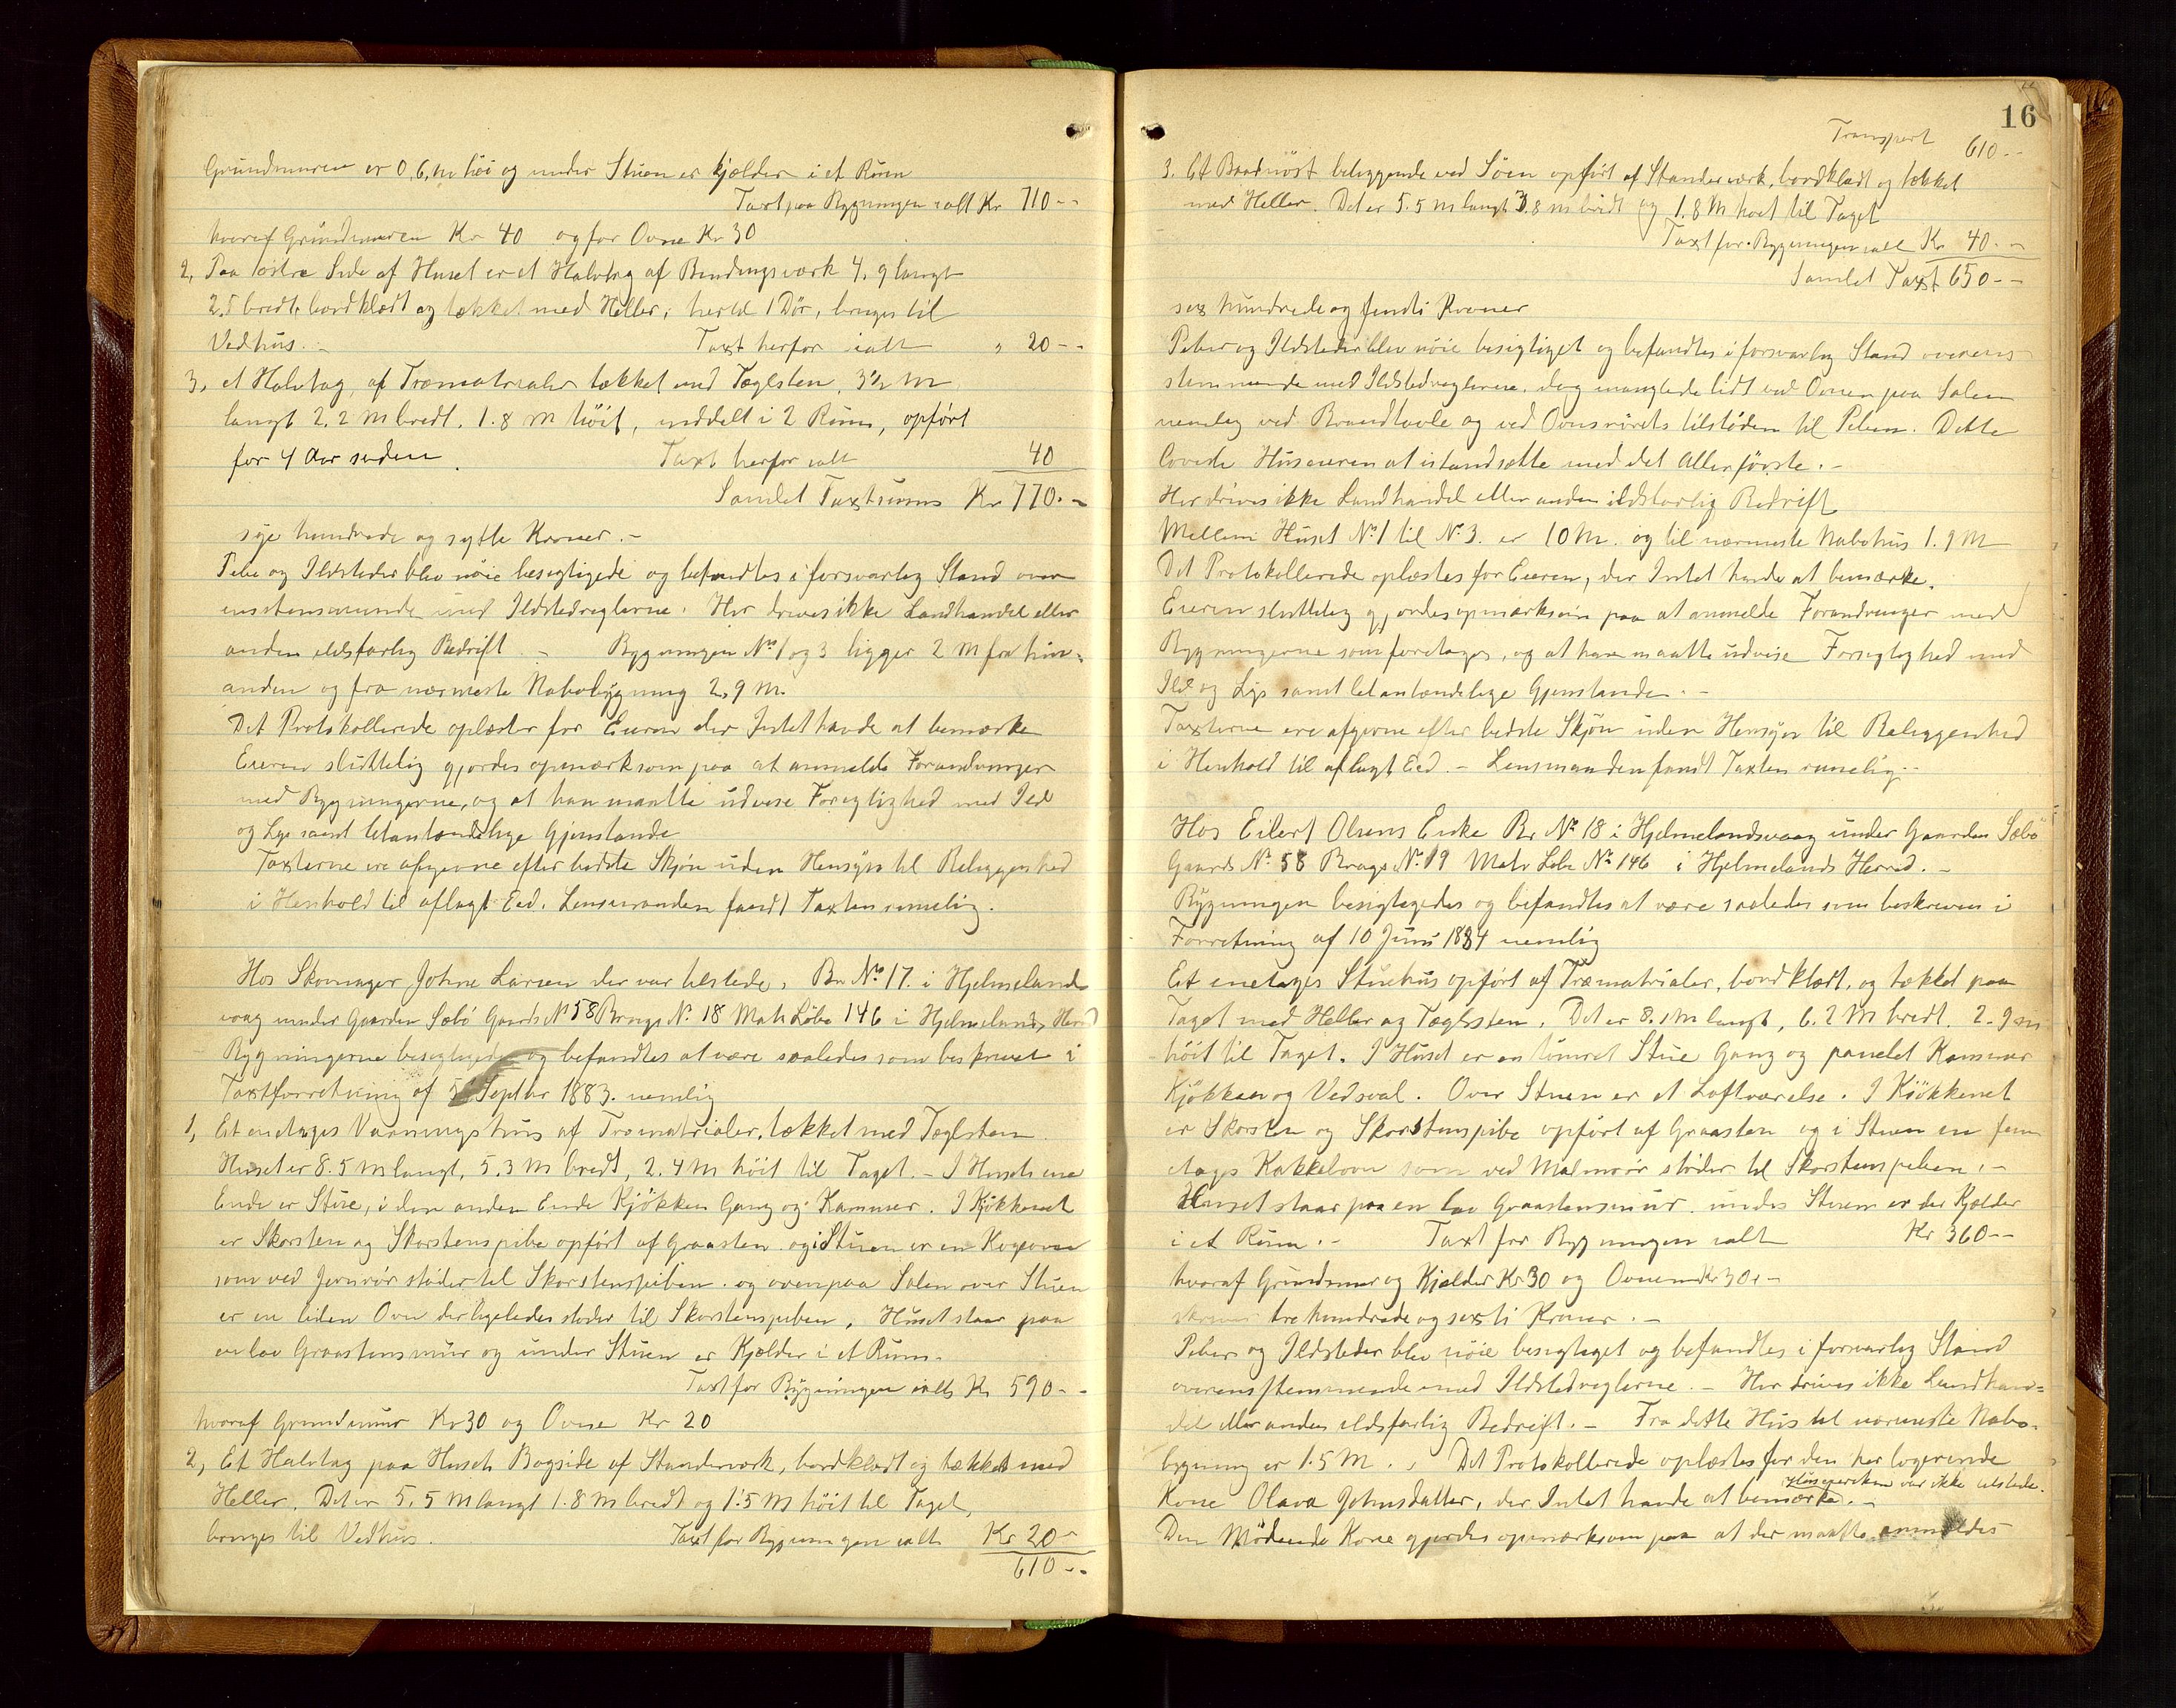 Grundmuren er 0,6, m höi og under Stuen er kjælder i et Rum
Taxt paa Bygningen ialt Kr 710--
hvoraf Grundmuren Kr 40 og for Ovne Kr 30
2, Paa östre Side af Huset er et Halvtag af Bindingsværk 4,9 langt
2.5 bredt, bordklædt og tækket med Heller, hertil 1 Dör, bruges til
Vedhus.- Taxt herfor ialt " 20--
3, et Halvtag, af Træmatrialer tækket med Tæglsten, 3½ m
langt 2.2 m bredt. 1.8 m höit, inddelt i 2 Rum, opfört
for 4 Aar siden. Taxt herfor ialt 40
Samlet Taxtsum Kr 770.-
syv hundrede og sytti Kroner.-
Piber og Ildsteder blev nöie besigtigede og befandtes i forsvarlig Stand over
ensstemmende med Ildstedreglerne. Her drives ikke Landhandel eller
anden ildsfarlig Bedrift.- Bygningen No 1 og 3 ligger 2 M fra hin-
anden og fra nærmeste Nabobygning 2,9 M.
Det Protokollerede oplæstes for Eieren der Intet havde at bemærke
Eieren sluttelig gjordes opmærksom paa at anmelde Forandringer
med Bygningerne, og at han maatte udvise Forsigtighed med Ild
og Lys samt letantændelige Gjenstande
Taxterne ere afgivne efter bedste Skjön uden Hensyn til Beliggenhed
i Henhold til aflagt Eed. Lensmanden fandt Taxten rimelig.
Hos Skomager Johne Larsen der var tilstede, Br No 17. i Hjelmelands
vaag under Gaarden Sæbö Gaards No 58 Brugs No. 18 Matr Löbe 146 i Hjelmelands Herred
Bygningerne besigtigedes og befandtes at være saaledes som beskrevet i
Taxtforretning af 5 Septbr 1883. nemlig
1, Et enetages Vaaningshus af Træmatrialer, tækket med Tæglsten
Huset er 8.5 M langt, 5.3 M bredt, 2.4 M höit til Taget.- I Husets ene
Ende er Stue, i den anden Ende Kjökken Gang og Kammer. I Kjökkenet
er Skorsten og Skorstenspibe opfört af Graasten. og i Stuen er en Kogeovn
som ved Jernrör stöder til Skorstenspiben. og ovenpaa Salen over Stuen
er en liden Ovn der ligeledes stöder til Skorstenspiben. Huset staar paa
en lav Graastensmur og under Stuen er Kjælder i et Rum.
Taxt for Bygningen ialt Kr 590--
hvoraf Grundmur Kr 30 og Ovne Kr 20
2, Et Halvtag paa Husets Bagside af Standerværk, bordklædt og tækket med
Heller. Det er 5,5 M langt 1.8 M bredt og 1.5 M höit til Taget,
bruges til Vedhus. Taxt for Bygningen ialt Kr 20-
610--
16
Transport 610--
3. Et Baadnöst beliggende ved Söen opfört af Standerværk, bordklædt og tækket
med Heller. Det er 5.5 M langt 3.8 m bredt og 1.8 M höit til Taget
Taxt for Bygningen ialt Kr 40.-
Samlet Taxt 650--
sex hundrede og femti Kroner
Piber og Ildsteder blev nöie besigtiget og befandtes i forsvarlig Stand overens
stemmende med Ildstedreglerne. dog manglede lidt ved Ovnen paa Salen
nemlig ved Brandtavle og ved Ovnsrörets tilstöden til Piben. Dette
lovede Huseieren at istandsætte med det Allerförste.-
Her drives ikke Landhandel eller anden ildsfarlig Bedrift
Mellem Huset No 1 til No 3. er 10 M. og til nærmeste Nabohus 1.9 M
Det Protokollerede oplæstes for Eieren, der Intet havde at bemærke.
Eieren sluttelig gjordes opmærksom paa at anmelde Forandringer med
Bygningerne som foretages, og at han maatte udvise Forsigtighed med
Ild og Lys samt letantændelige Gjenstande.-
Taxterne ere afgivne efter bedste Skjön uden Hensyn til Beliggenhed
i Henhold til aflagt Eed.- Lensmanden fandt Taxten rimelig.-
Hos Eilert Olsens Enke Br No 18 i Hjelmelandsvaag under Gaarden Sæbö
Gaards No 58 Brugs No. 19 Matr Löbe No 146 i Hjelmelands Herred.-
Bygningen besigtigedes og befandtes at være saaledes som beskreven i
Forretning af 10 Juni 1884 nemlig
Et enetages Stuehus opfört af Træmatrialer, bordklædt, og tækket paa
Taget med Heller og Tæglsten. Det er 8.1 M langt, 6.2 M bredt. 2.9 m
höit til Taget. I Huset er en tömret Stue Gang og panelet Kammer
Kjökken og Vedsval. Over Stuen er et Loftværelse. I Kjökkenet
er Skorsten og Skorstenspibe opfört af Graasten og i Stuen en fem
etages Kakkelovn som ved Malmrör stöder til Skorstenspiben.-
Huset staar paa en lav Graastensmur. under Stuen er der Kjælder
i et Rum.- Taxt for Bygningen ialt Kr 360--
hvoraf Grundmur og Kjælder Kr 30 og Ovnen Kr 30.-
skriver tre hundrede og sexti Kroner.-
Piber og Ildsteder blev nöie besigtiget og befandtes i forsvarlig Stand
overensstemmende med Ildstedreglerne.- Her drives ikke Landhan-
del eller anden ildsfarlig Bedrift.- Fra dette Hus til nærmeste Nabo-
bygning er 1.5 M. Det Protokollerede oplæstes for den her logerende
Kone Olava Johnsdatter, der Intet havde at bemærke. Huseiersken var ikke tilstede.
Den Mödende Kone gjordes opmærksom paa at der maatte anmeldes